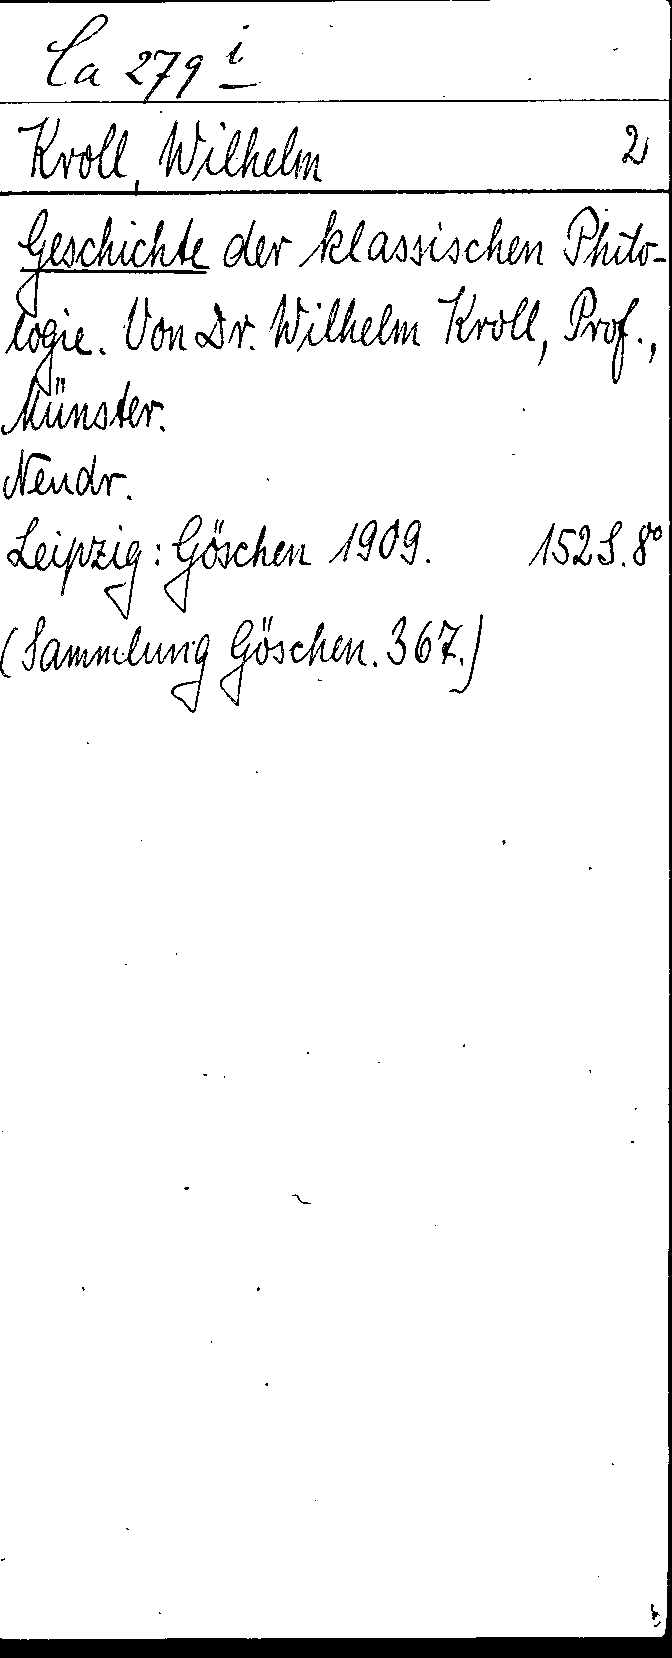 Ca 279 i
Kroll, Wilhelm 2
Geschichte der klassischen Philo-
logie. Von Dr. Wilhelm Kroll, Prof.,
Münster.
Neudr.
Leipzig: Göschen 1909. 152 S. 8°
(Sammlung Göschen. 367.)